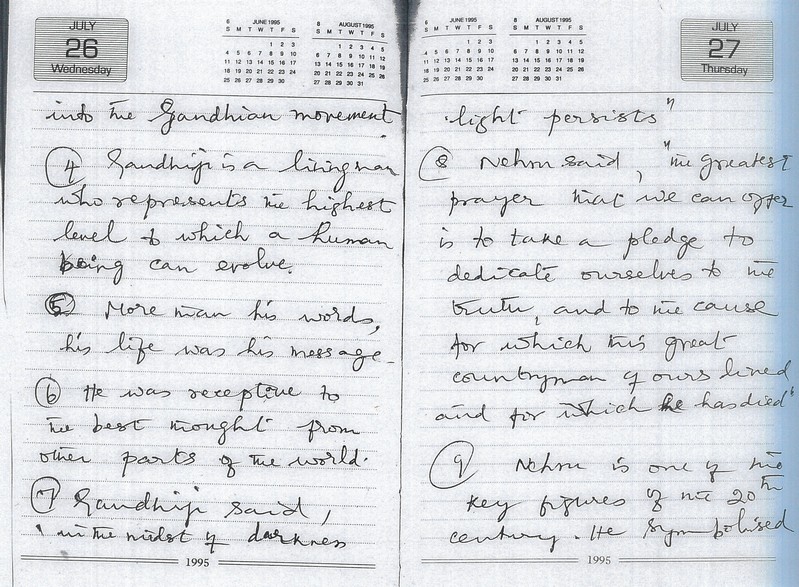 JULY
26
Wednesday
6 JUNE 1995
S M T W T F S
1 2 3
4 5 6 7 8 9 10
11 12 13 14 15 16 17
18 19 20 21 22 23 24
25 26 27 28 29 30
8 AUGUST 1995
S M T W T F S
1 2 3 4 5
6 7 8 9 10 11 12
13 14 15 16 17 18 19
20 21 22 23 24 25 26
27 28 29 30 31
into the Gandhian movement
④ Gandhiji is a living man
who represents the highest
level to which a human
being can evolve.
⑤ More than his words,
his life was his message.
⑥ He was receptive to
the best thought from
other parts of the world.
⑦ Gandhiji said,
' in the midst of darkness
1995
6 JUNE 1995
S M T W T F S
1 2 3
4 5 6 7 8 9 10
11 12 13 14 15 16 17
18 19 20 21 22 23 24
25 26 27 28 29 30
8 AUGUST 1995
S M T W T F S
1 2 3 4 5
6 7 8 9 10 11 12
13 14 15 16 17 18 19
20 21 22 23 24 25 26
27 28 29 30 31
JULY
27
Thursday
light persists"
⑧ Nehru said, "the greatest
prayer that we can offer
is to take a pledge to
dedicate ourselves to the
truth, and to the cause
for which this great
countryman of ours lived
and for which he has died"
⑨ Nehru is one of the
key figures of the 20th
century. He symbolised
1995